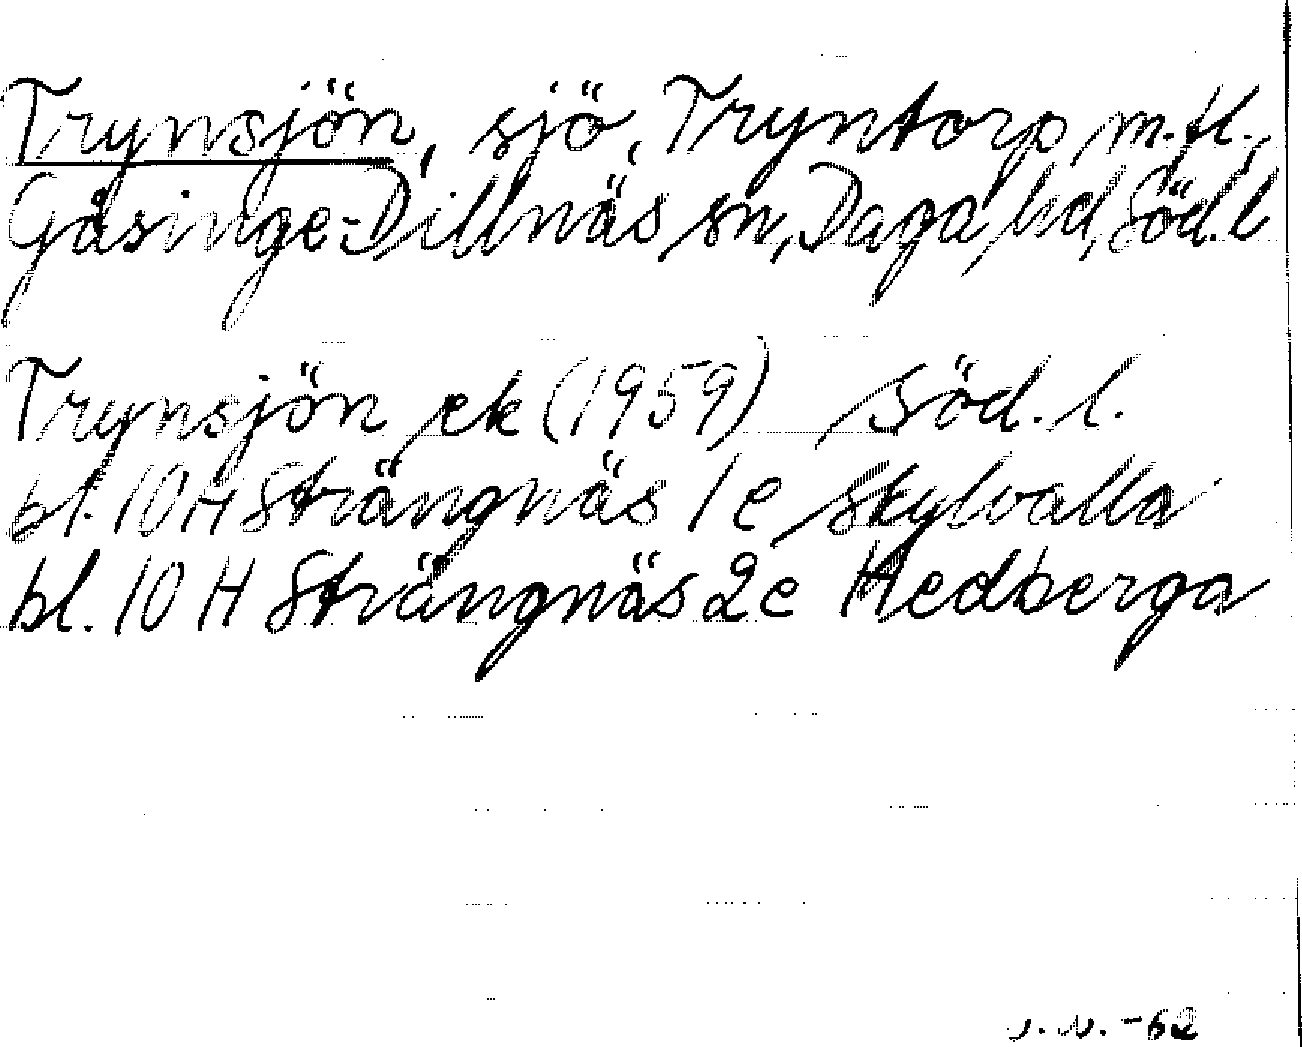 Trynsjön, sjö, Tryntorp m.fl.,
Gåsinge-Dillnäs sn, Daga hd, Söd.l
Trynsjön ek (1959) Söd. l.
bl. 10 H Strängnäs 1 e Skylvalla
bl. 10 H Strängnäs 2 e Hedberga
-62